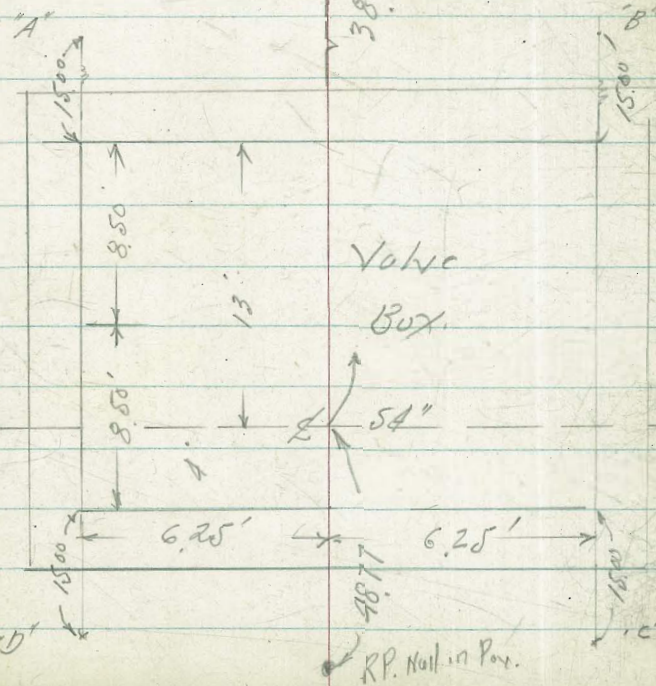 "A"
38.
"B"
15.00'
15.00'
8.50
13'
Valve
Box.
8.50'
4'
℄ 54"
6.25'
6.25'
15.00
48.77
15.00'
"D"
"C"
R.P. Nail in Pav.